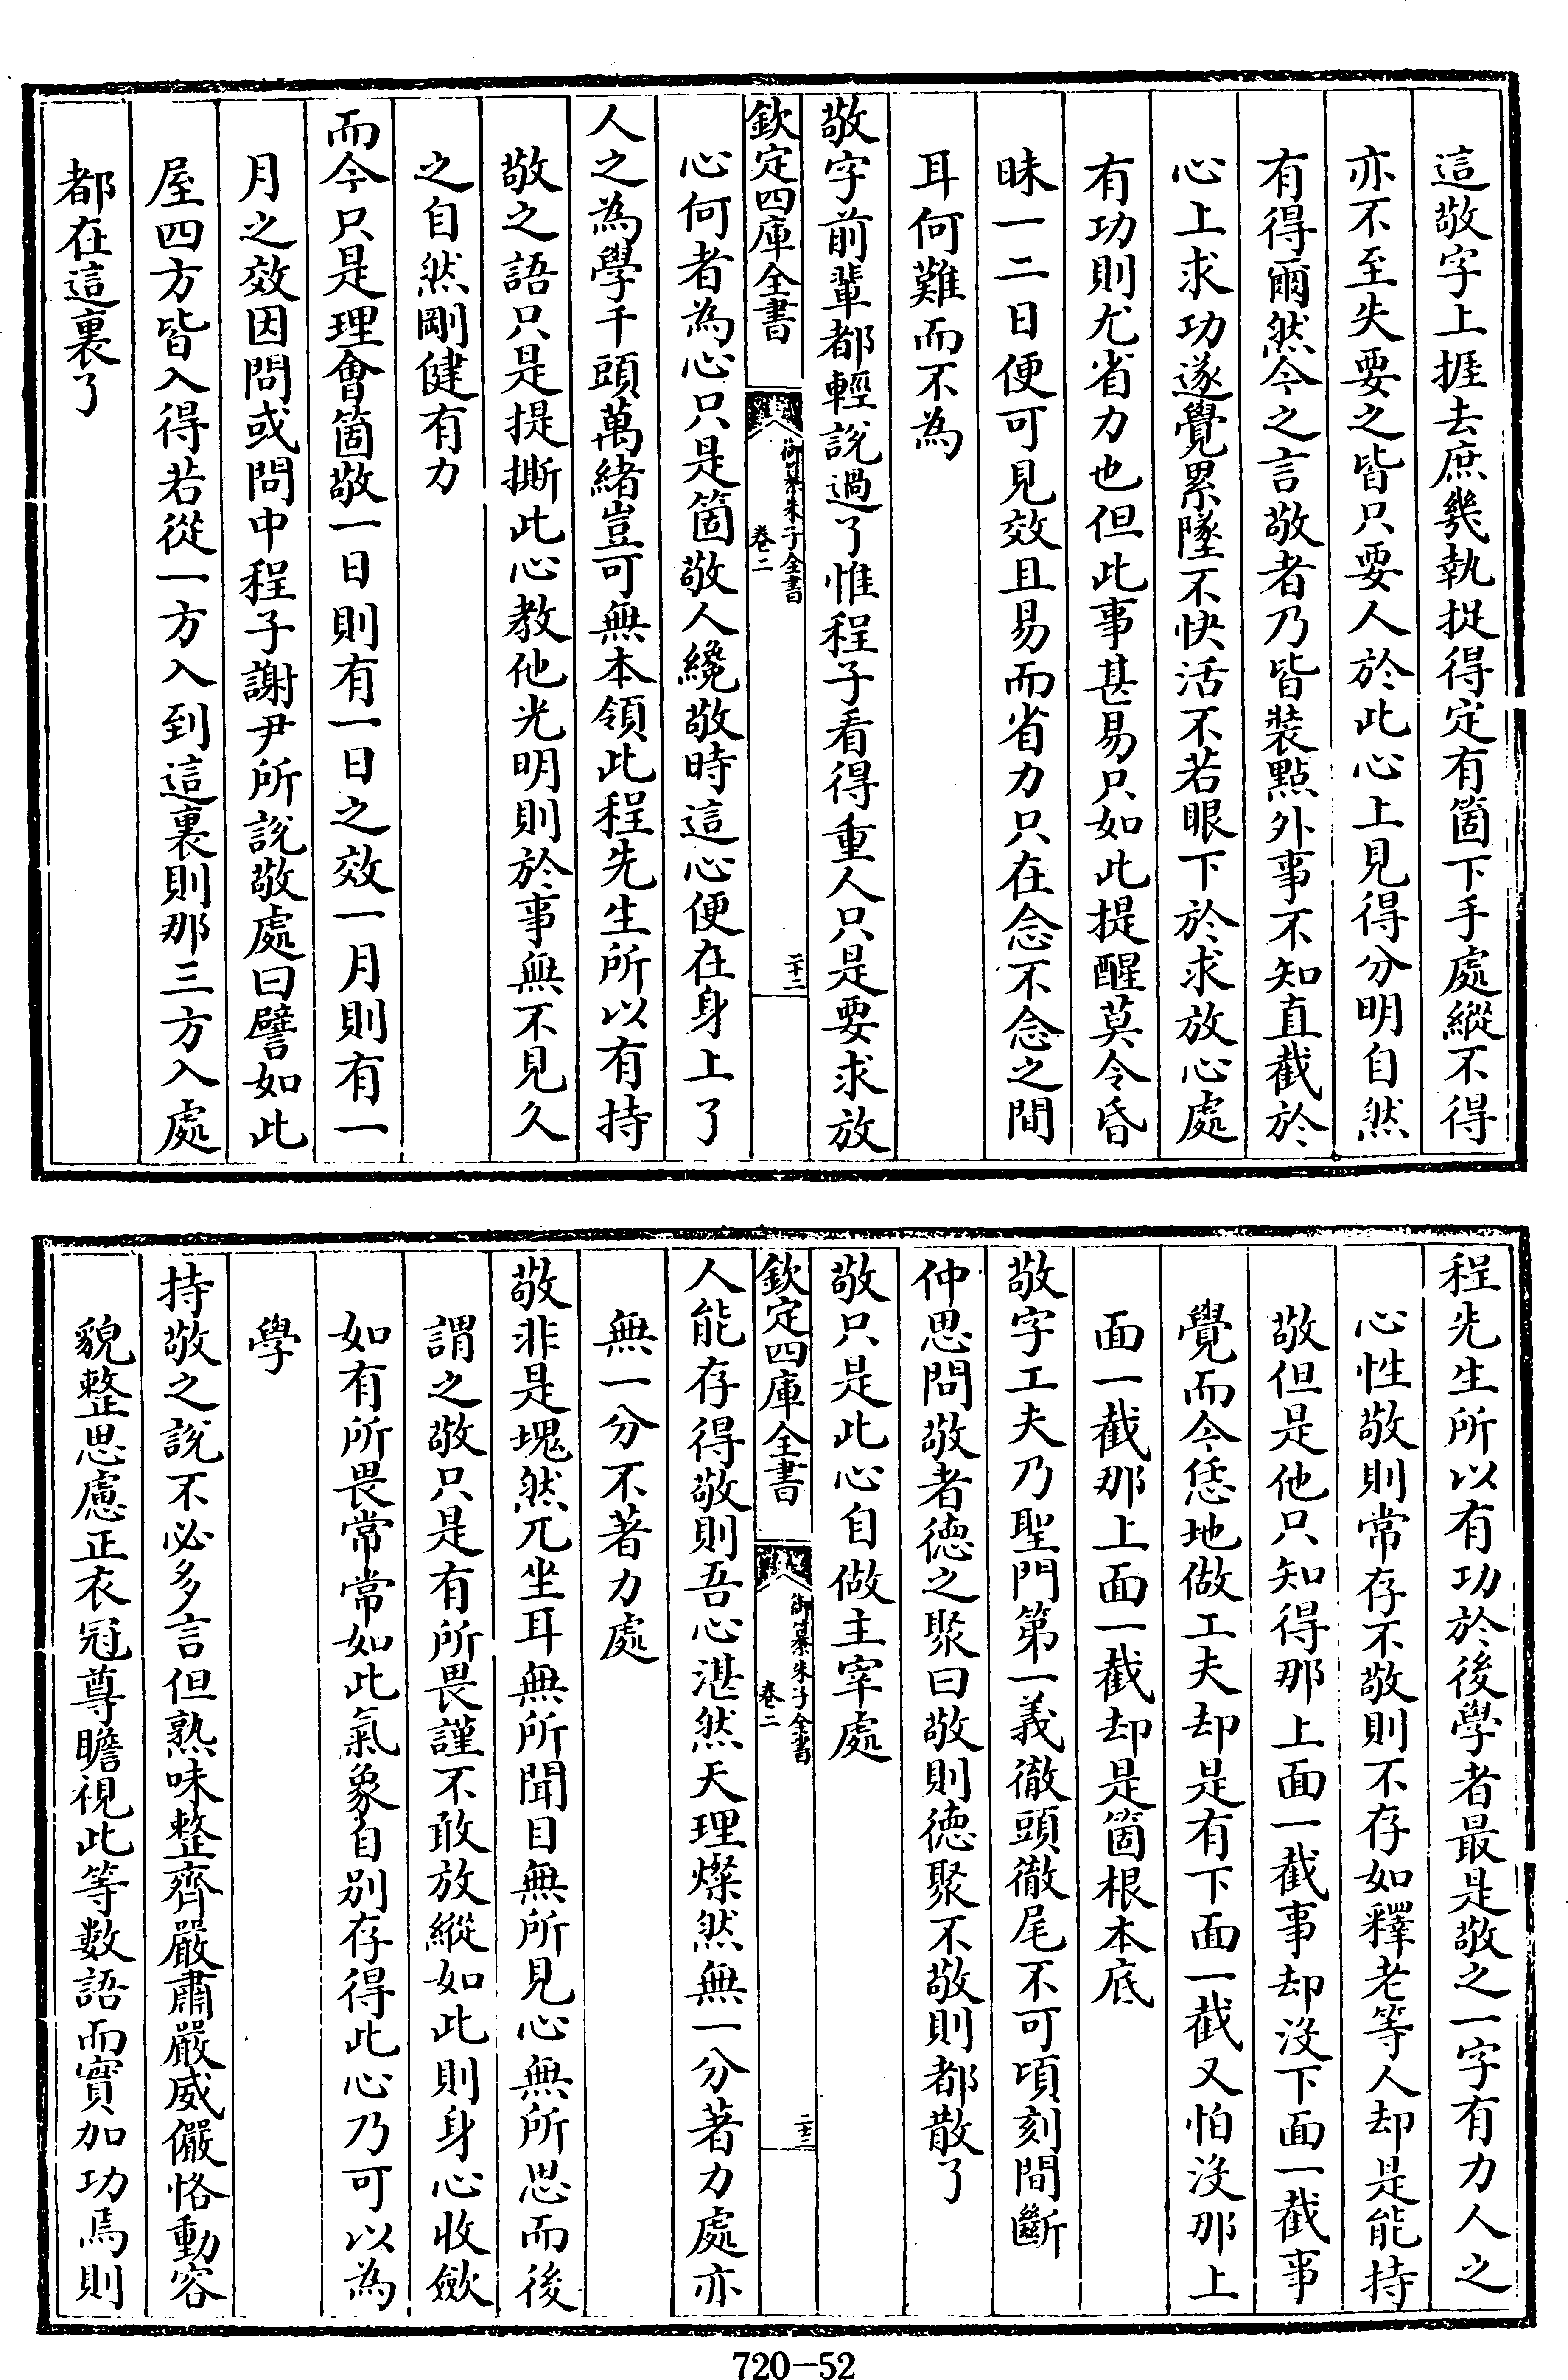 這敬字上捱去庶幾執捉得定有箇下手處縱不得
亦不至失要之皆只要人於此心上見得分明自然
有得爾然今之言敬者乃皆裝點外事不知直截於
心上求功遂覺累墜不快活不若眼下於求放心處
有功則尤省力也但此事甚易只如此提醒莫令昏
昧一二日便可見效且易而省力只在念不念之間
耳何難而不為
敬字前輩都輕說過了惟程子看得重人只是要求放
欽定四庫全書
御纂朱子全書
卷二
二十二
心何者為心只是箇敬人纔敬時這心便在身上了
人之為學千頭萬緒豈可無本領此程先生所以有持
敬之語只是提撕此心教他光明則於事無不見久
之自然剛健有力
而今只是理會箇敬一日則有一日之效一月則有一
月之效因問或問中程子謝尹所說敬處曰譬如此
屋四方皆入得若從一方入到這裏則那三方入處
都在這裏了
程先生所以有功於後學者最是敬之一字有力人之
心性敬則常存不敬則不存如釋老等人却是能持
敬但是他只知得那上面一截事却沒下面一截事
覺而今恁地做工夫却是有下面一截又怕沒那上
面一截那上面一截却是箇根本底
敬字工夫乃聖門第一義徹頭徹尾不可頃刻間斷
仲思問敬者德之聚曰敬則德聚不敬則都散了
敬只是此心自做主宰處
欽定四庫全書
御纂朱子全書
卷二
二十三
人能存得敬則吾心湛然天理燦然無一分著力處亦
無一分不著力處
敬非是塊然兀坐耳無所聞目無所見心無所思而後
謂之敬只是有所畏謹不敢放縱如此則身心收斂
如有所畏常常如此氣象自別存得此心乃可以為
學
持敬之說不必多言但熟味整齊嚴肅嚴威儼恪動容
貌整思慮正衣冠尊瞻視此等數語而實加功焉則
720-52